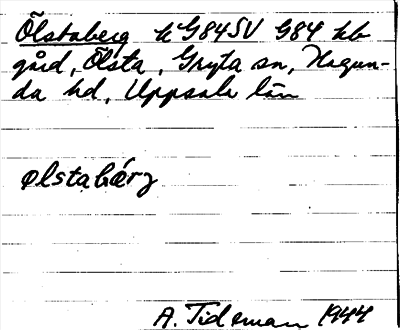 Ölstaberg k G84SV G84 hb
gård, Ölsta, Gryta sn, Hagun-
da hd, Uppsala län
ølstabérj
A. Tideman 1944